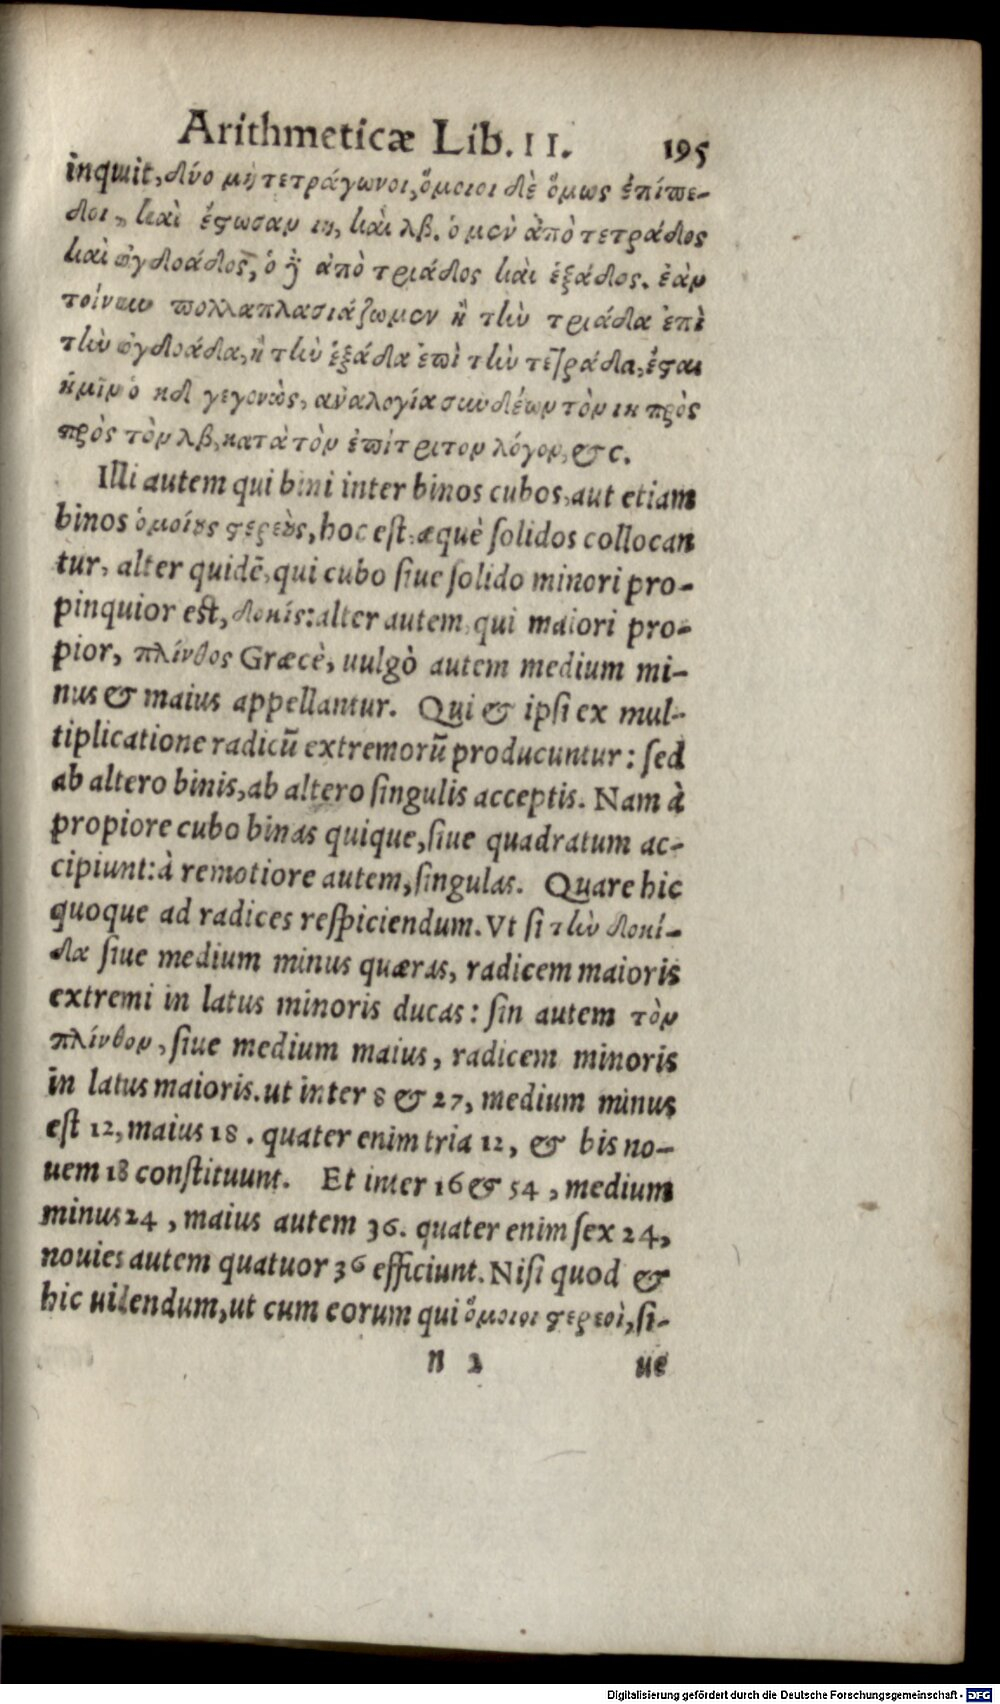 Arithmeticæ Lib. II. 195
inquit, δύο μὴ τετράγωνοι, ὅμοιοι δὲ ὅμως ἐπίπε-
δοι, καὶ ἔστωσαν ιη, καὶ λβ. ὁ μὲν ἀπὸ τετράδος
καὶ ὀγδοάδος, ὁ δὲ ἀπὸ τριάδος καὶ ἑξάδος. ἐὰν
τοίνυν πολλαπλασιάζωμεν ἢ τὴν τριάδα ἐπὶ
τὴν ὀγδοάδα, ἢ τὴν ἑξάδα ἐπὶ τὴν τετράδα, ἔσται
ἡμῖν ὁ κδ γεγονὼς, ἀναλογία συνδέων τὸν ιη πρὸς
πρὸς τὸν λβ, κατὰ τὸν ἐπίτριτον λόγον, &c.
Illi autem qui bini inter binos cubos, aut etiam
binos ὁμοίους στερεοὺς, hoc est, æquè solidos collocan
tur, alter quidē, qui cubo siue solido minori pro-
pinquior est, δοκίς: alter autem, qui maiori pro-
pior, πλίνθος Græcè, uulgò autem medium mi-
nus & maius appellantur. Qui & ipsi ex mul-
tiplicatione radicū extremorū producuntur: sed
ab altero binis, ab altero singulis acceptis. Nam à
propiore cubo binas quique, siue quadratum ac-
cipiunt: à remotiore autem, singulas. Quare hic
quoque ad radices respiciendum. Vt si τὴν δοκί-
δα siue medium minus quæras, radicem maioris
extremi in latus minoris ducas: sin autem τὸν
πλίνθον, siue medium maius, radicem minoris
in latus maioris. ut inter 8 & 27, medium minus
est 12, maius 18. quater enim tria 12, & bis no-
uem 18 constituunt. Et inter 16 & 54, medium
minus 24, maius autem 36. quater enim sex 24,
nouies autem quatuor 36 efficiunt. Nisi quod &
hic uidendum, ut cum eorum qui ὅμοιοι στερεοὶ, si-
n 2 ue
Digitalisierung gefördert durch die Deutsche Forschungsgemeinschaft - DFG